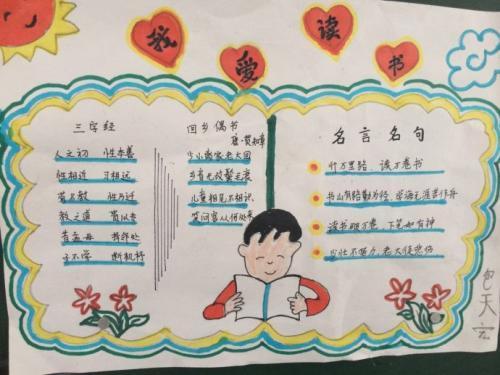 我爱读书
三字经
人之初 性本善
性相近 习相远
苟不教 性乃迁
教之道 贵以专
昔孟母 择邻处
子不学 断机杼
回乡偶书
唐·贺知章
少小离家老大回
乡音无改鬓毛衰
儿童相见不相识
笑问客从何处来
名言名句
行万里路、读万卷书
书山有路勤为径、学海无涯苦作舟
读书破万卷、下笔如有神
少壮不努力、老大徒悲伤
天